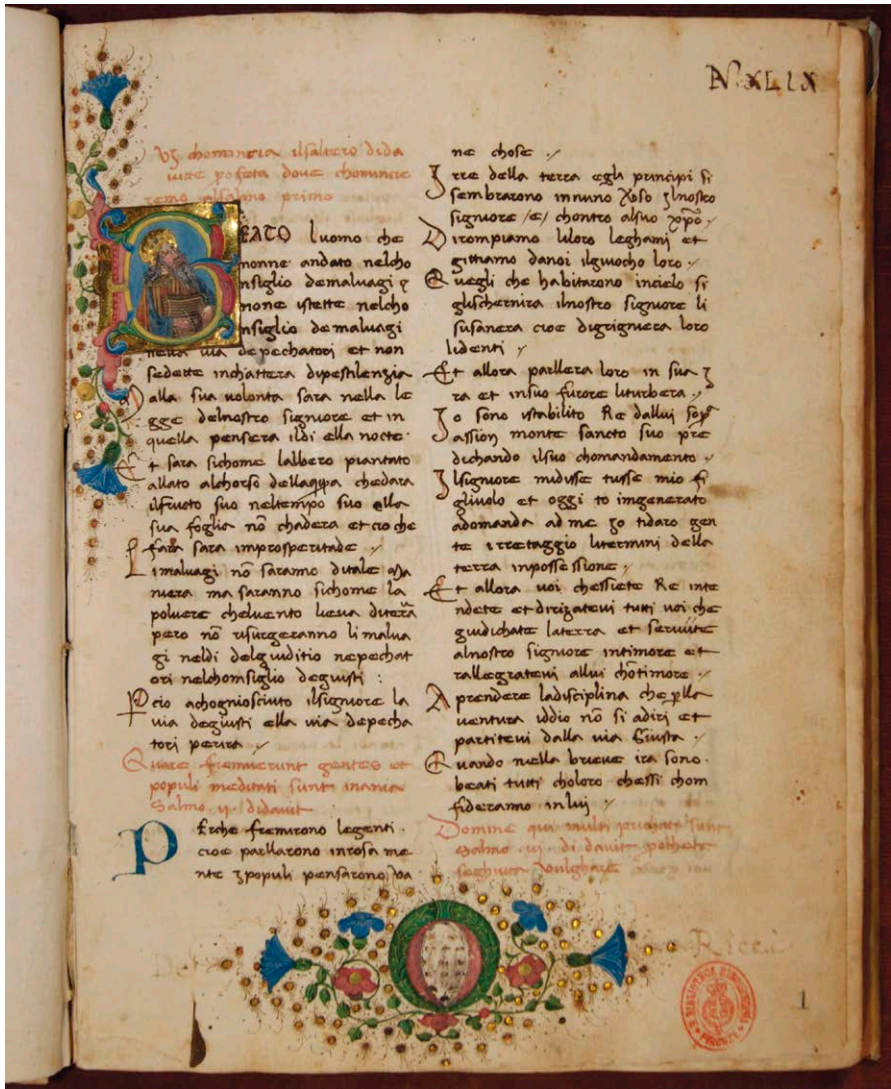 N. XLIX
chomincia ilsaltero dida
uitte profeta dove chomincie
remo alsalmo primo
BEATO luomo che
nonne andato nelcho
nsiglio demaluagi &
none istette nelcho
nsiglio de maluagi
nella uia de pechatori et non
sedette inchattera dipestilenzia
Dalla sua uolonta sara nella le
gge delnostro signiore et in
quella pensera ildi ella nocte.
Et sara sichome lalbero piantato
allato alchorso dellaqua chedara
ilfructo suo neltempo suo ella
sua foglia nō chadera et cio che
fara sara improsperitade
Limaluagi nō saranno ditale ma
niera ma saranno sichome la
poluere cheluento lieua diterra
pero nō risurgeranno li malua
gi neldi delgiuditio nepechat
ori nelchonsiglio degiusti :
Pcio achogniosciuto ilsigniore la
uia degiusti ella uia depecha
tori perira
Quare fremuerunt gentes et
populi meditati sunt inania
Salmo .ij. didauit
PErche fremirono legenti .
cioe parllarono introsa me
nte & populi pensarono ua
ne chose
Irre della terra egli principi si
sembrarono innuno choso ilnostro
signiore /e/ chontro alsuo xpō
Dirompiamo liloro leghami et
gittiamo danoi ilgiuocho loro
Quegli che habitarono incielo si
glischernira ilnostro signiore li
susanera cioe digrigniera loro
lidenti
Et allora parllera loro in sua i
ra et insuo furore liturbera
Io sono istabilito Re dallui sop
assion monte sancto suo pre
dichando ilsuo chomandamento
Ilsigniore midisse tusse mio fi
gliuolo et oggi to imgenerato
adomanda ad me io tidaro gen
te irretaggio litermini della
terra inpossessione
Et allora voi chessiete Re inte
ndete et dirizateui tutti voi che
giudichate laterra et seruite
alnostro signiore intimore et
rallegrateui allui chōtimore
Aprendere ladisciplina che plla
uentura iddio nō si adiri et
partiteui dalla uia Giusta
Quando nella brieue ira sono
beati tutti choloro chessi chom
fideranno in lui
Domine qui multi sunt
Salmo di dauit
seghuita uulghare
Ricca
1